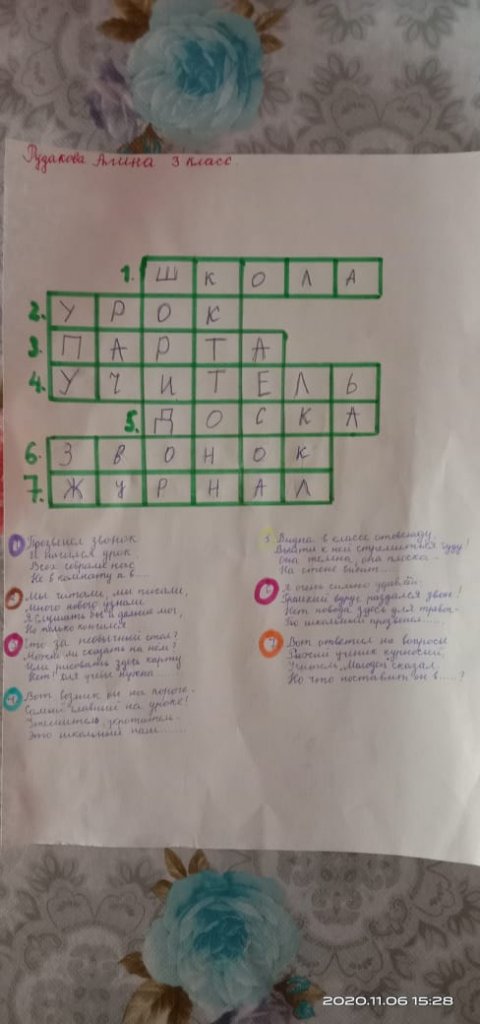 Рузакова Алина 3 класс.
1. Ш К О Л А
2. У Р О К
3. П А Р Т А
4. У Ч И Т Е Л Ь
5. Д О С К А
6. З В О Н О К
7. Ж У Р Н А Л
1 Прозвенел звонок
И начался урок
Всех собрала нас
Не в комнату а в....
2 Мы читали, мы писали,
Много нового узнали
Я слушать бы и дальше мог,
Но только кончился
3 Что за необычный стол?
Можем ли сказать на нем?
Чем рисовать здесь карту
Нет! для учебы нужна.....
4 Вот возник он на пороге.
Самый главный на уроке!
это школьный наш.......
5. Видна в классе отовсюду,
Выйти к ней стремиться буду!
Она темна, она плоска -
На стене висит....
6 Я очень сильно удивлён.
Громкий вдруг раздался звон!
Нет повода здесь для тревог-
Это школьный прозвенел....
7 Вот ответил на вопросы
ученик курносый,
Учитель „Молодец" сказал
Но что поставит он в.....?
2020.11.06 15:28